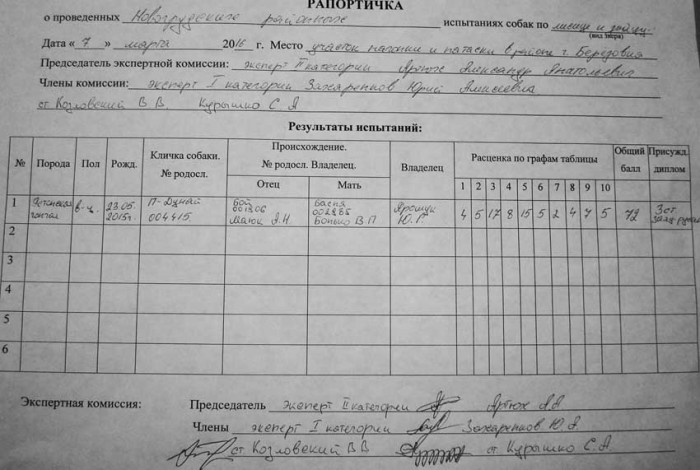 РАПОРТИЧКА
о проведенных Новогрудские районные испытаниях собак по лисице и зайцу
(вид зверя)
Дата « 7 » марта 2016 г. Место участок нагонки и натаски в районе г. Березовка
Председатель экспертной комиссии: эксперт II категории Артюх Александр Анатольевич
Члены комиссии: эксперт I категории Захаренков Юрий
ст Козловский В В, Курышко С. А
Результаты испытаний:
№ Порода Пол Рожд. Кличка собаки. № родосл. Происхождение. № родосл. Владелец. Владелец Расценка по графам таблицы Общий балл Присужд. диплом
Отец Мать 1 2 3 4 5 6 7 8 9 10
1 Эстонская гончая в-ц. 23.05. 2015г. П-Дунай 004415 Бой Маюк А.Н. Басня Бонько В П Ю. Г. 4 5 17 8 15 5 2 4 7 5 72 3 ст
2
3
4
5
6
Экспертная комиссия: Председатель эксперт II категории Артюх А.А
Члены эксперт I категории Захаренков Ю. А.
ст Козловский В В ст Курышко С. А.